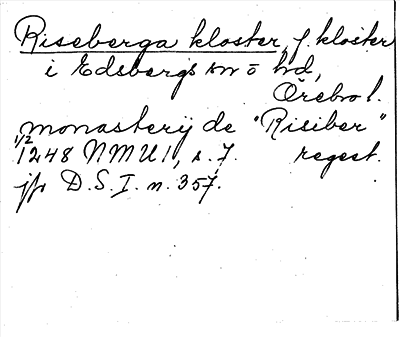 Riseberga kloster, f. kloster
i Edsbergs sn o hd,
Örebro l.
monasterij de "Risiber"
1/2 1248 NMU 1, s. 7. regest.
jfr D.S.I. n. 357.